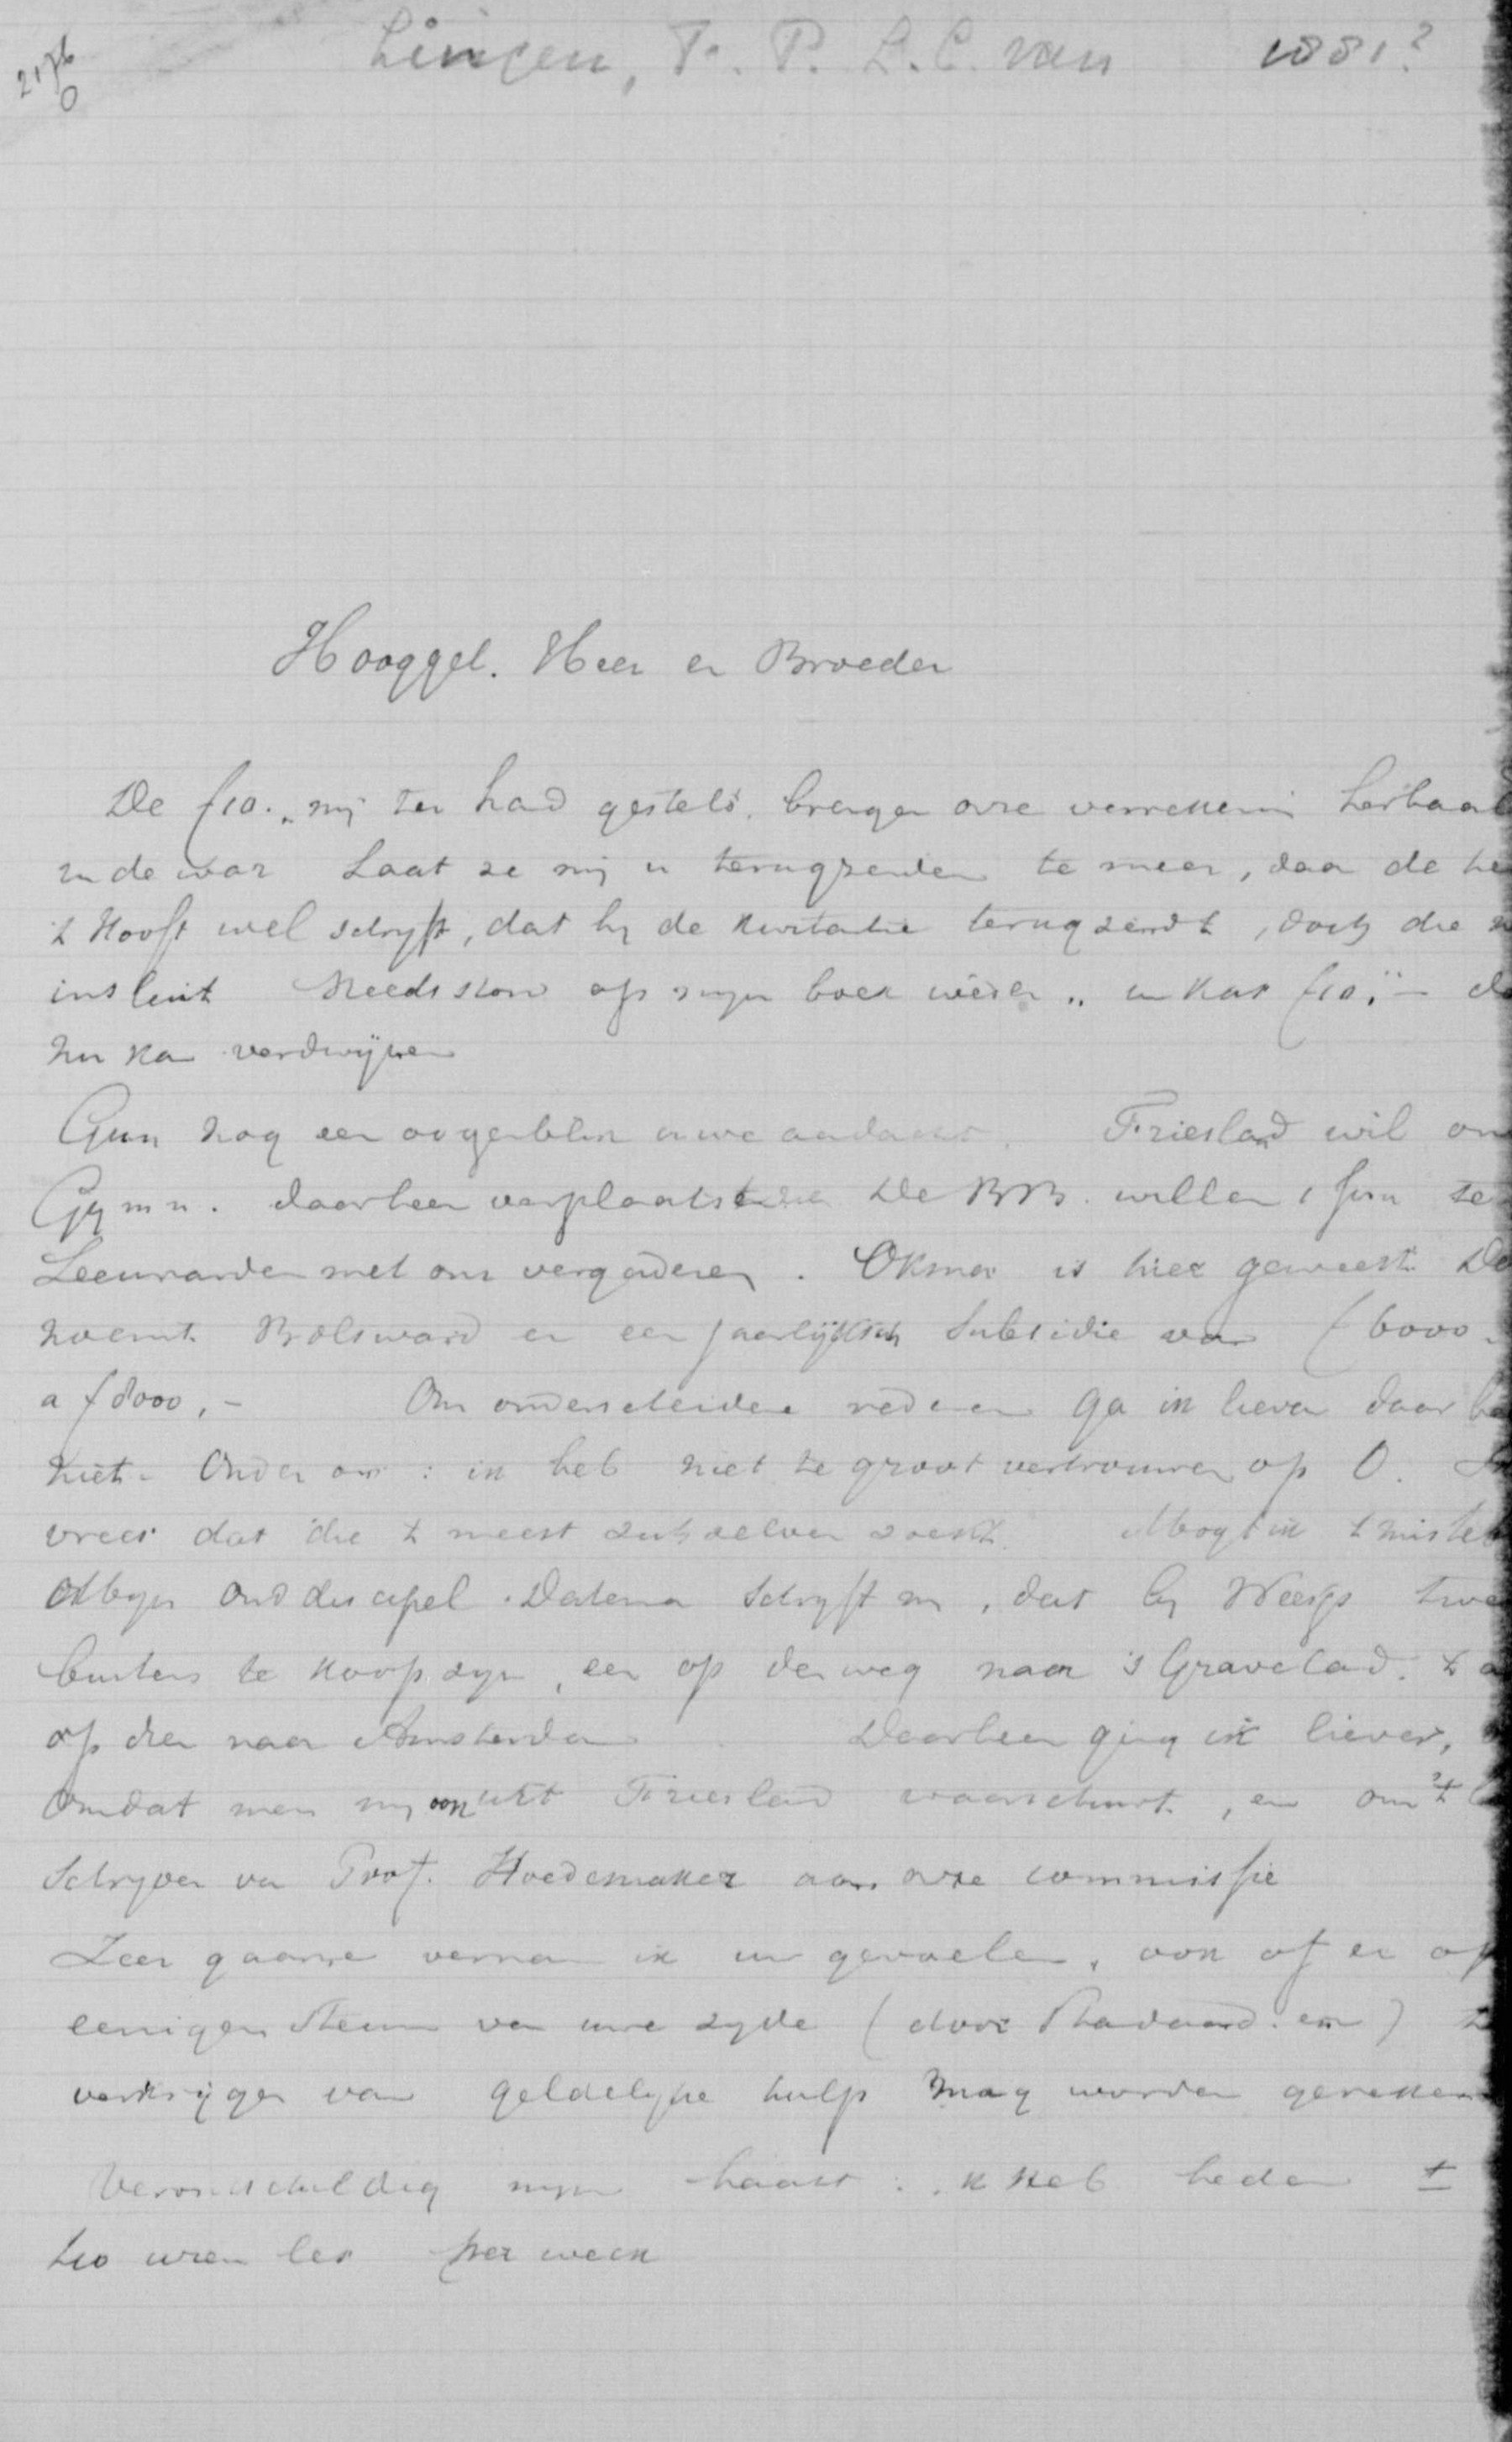 Lingen, F. P. L. C. van 1881?
2176
0
Hooggel. Heer en Broeder
De f10.„ mij ter hand gesteld. brengen onze verrekening
in de war Laat ze mij u terugzenden te meer, daar de
't Hooft wel schryft, dat hy de kwitantie terugzendt, doch die
insluit Reeds stond op myn boek weder „ in kas f10,"–
nu kan verdwijnen
Gun nog een oogenblik uwe aandacht. Friesland wil
Gymn. daarheen verplaatst zien De BB. willen 1 Juni te
Leeuwarden met ons vergaderen. Okma is hier geweest. De
noemt Bolsward en een jaarlijksch subsidie van f 6000.
a f8000,– Om onderscheidene redenen ga ik liever daar
niet. Onder and: ik heb niet te groot vertrouwen op O.
vrees dat die 't meest zichzelven zoekt. Mogt ik 't
Myn oud discipel Datema schryft m, dat by Weesp
buitens te koop zyn, een op den weg naar 's Graveland.
op dien naar Amsterdam Daarheen ging ik liever,
omdat men my ook uit Friesland waarschuwt, en om 't
schryven van Prof. Hoedemaker aan onze commissie
Zeer gaarne vernam ik uw gevoelen, ook of er op
eenigen steun van uwe zyde (door Standaard. en)
verkrijgen van geldelyke hulp mag worden
Verontschuldig myn haast: ik heb heden ±
uren les per week